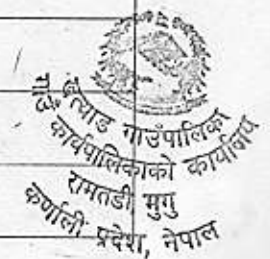 खत्याड गाउँपालिका
गाउँ कार्यपालिकाको कार्यालय
रामतडी मुगु
कर्णाली प्रदेश, नेपाल